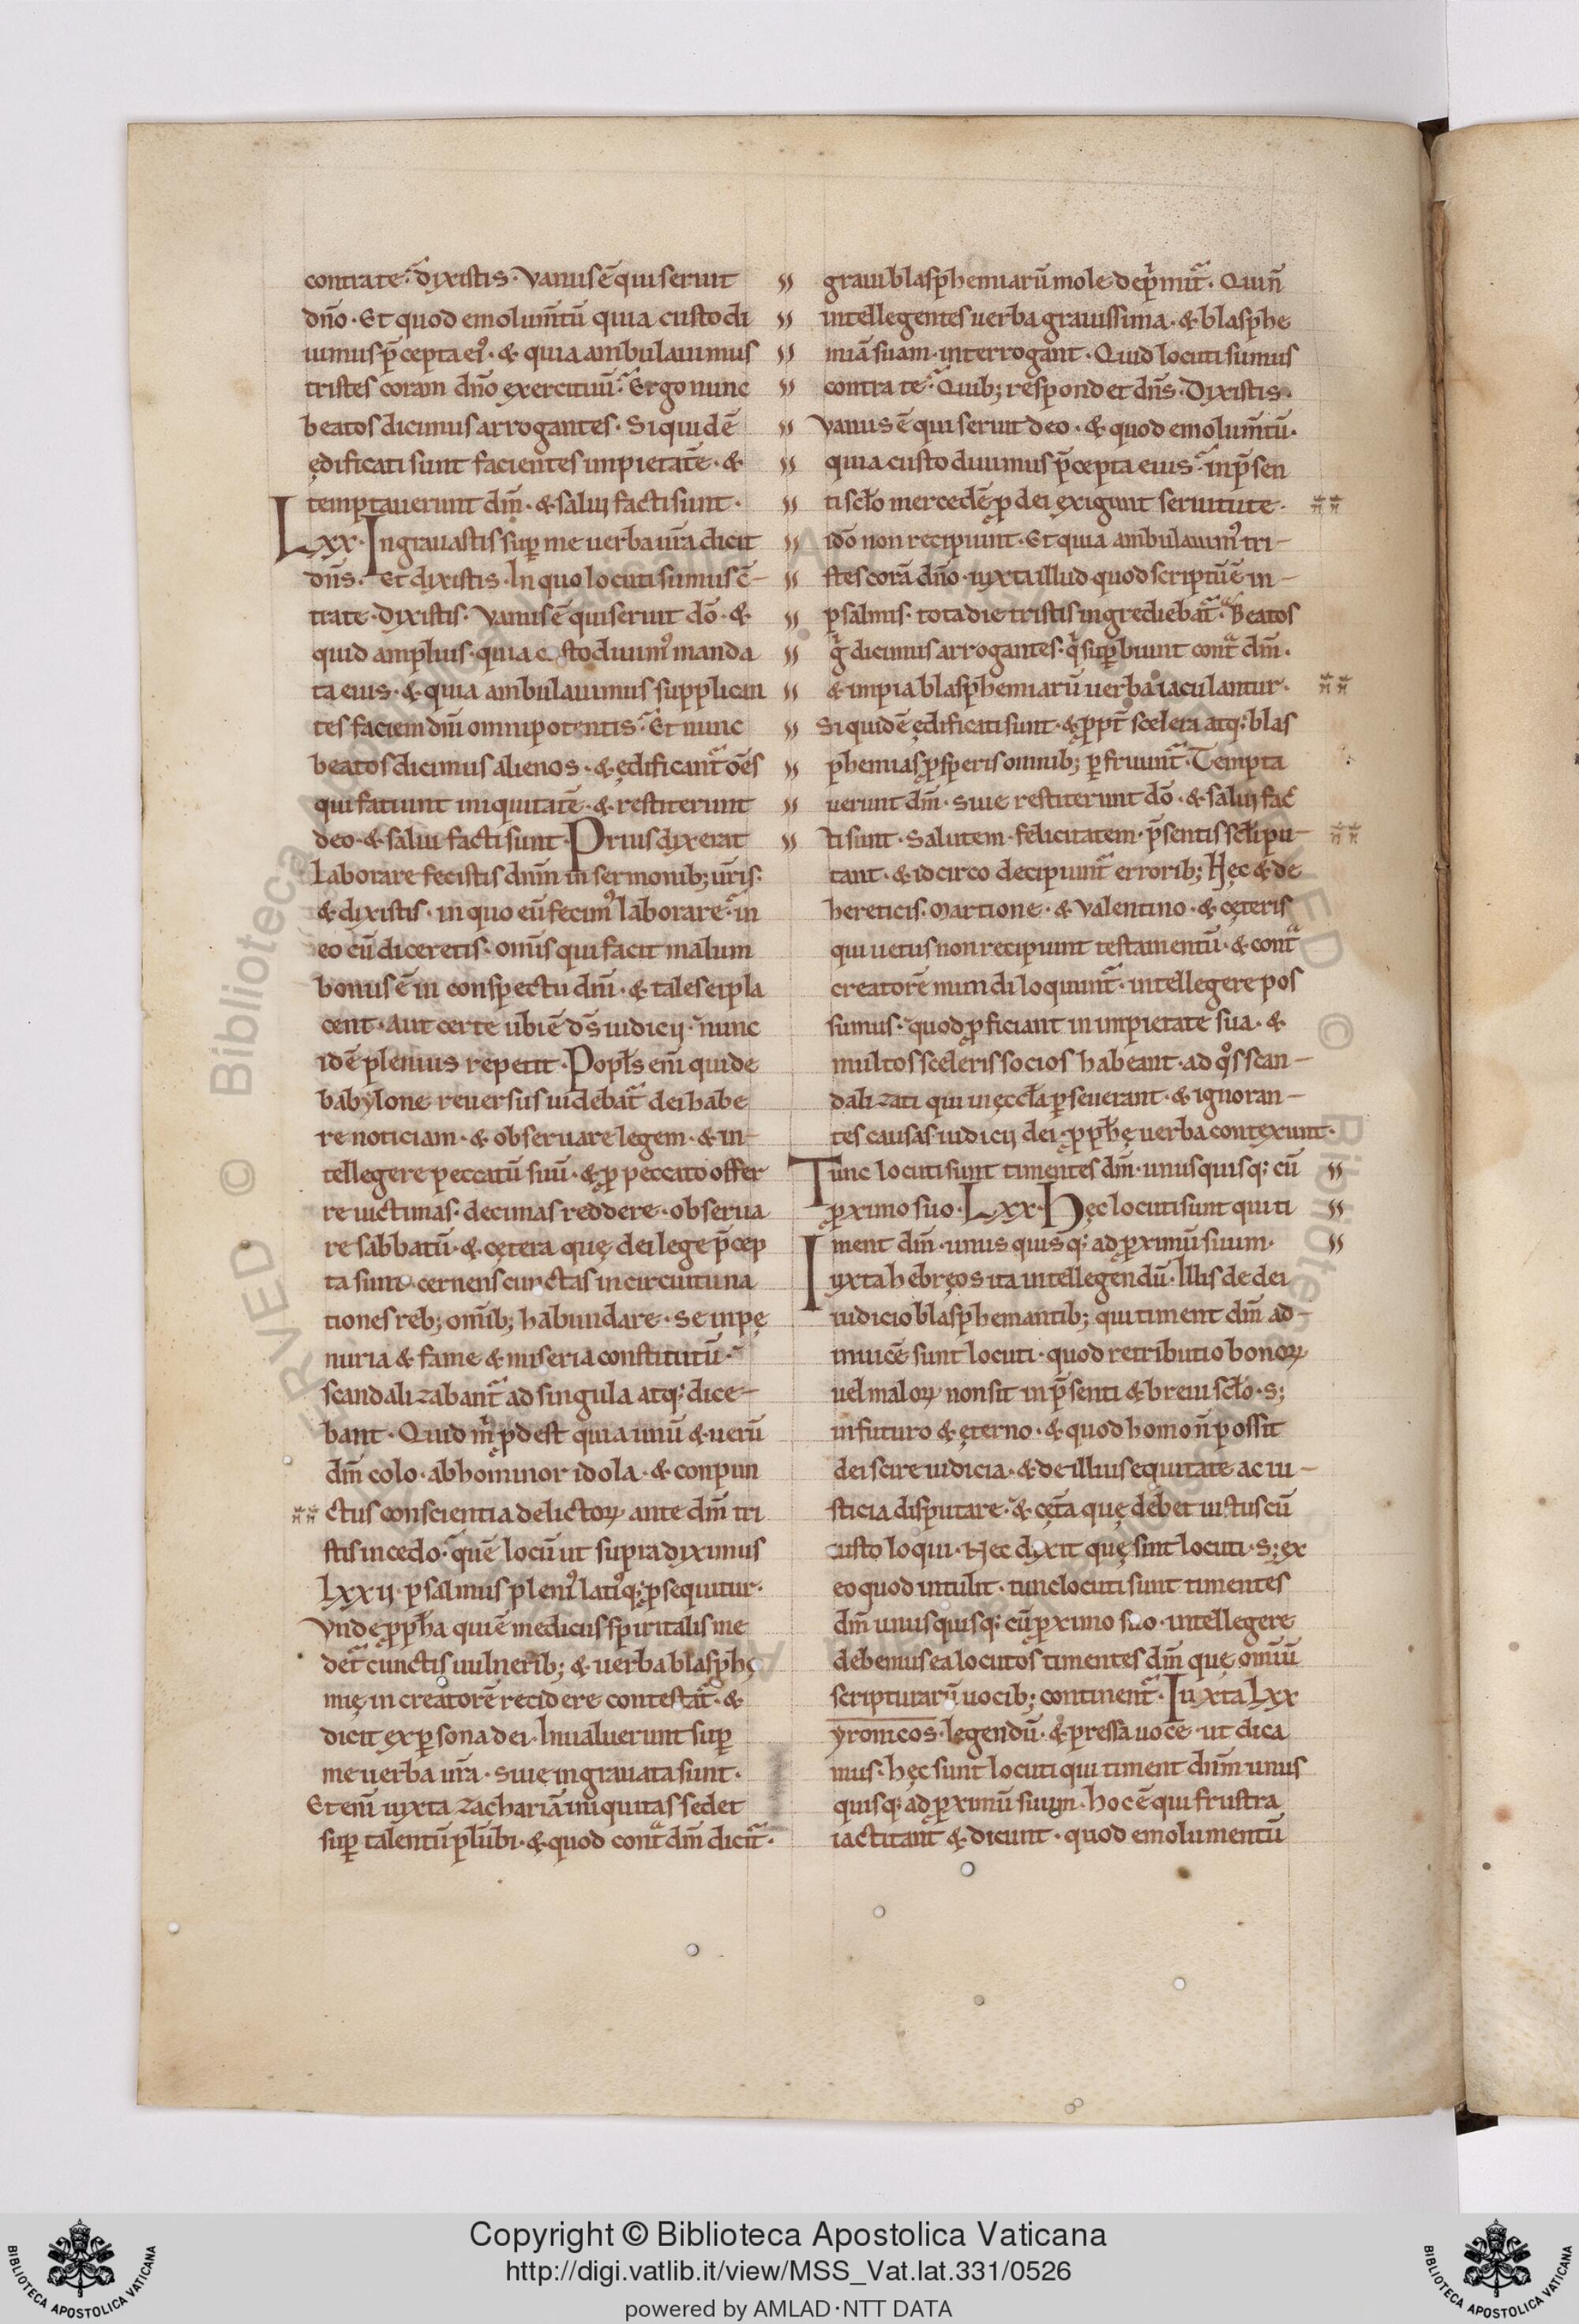 contra te. dixistis. Vanus ē qui seruit
dn̄o. Et quod emolum̄tū quia custodi
uimus p̄cepta eiꝰ. & quia ambulauimus
tristes coram dn̄o exercituū. Ergo nunc
beatos dicimus arrogantes. Siquidē
ędificati sunt facientes impietatē. &
temptauerunt dm̄. & salui facti sunt.
Lxx. Ingrauastis suꝑ me uerba ur̄a dicit
dn̄s. Et dixistis. In quo locuti sumus cō-
tra te. Dixistis. Vanus ē qui seruit dō. &
quid amplius. quia custodiuimꝰ manda
ta eius. & quia ambulauimus supplican
tes faciem dn̄i omnipotentis. Et nunc
beatos dicimus alienos. & ędificant᷑ om̄s
qui fatiunt iniquitatē. & restiterunt
deo. & salui facti sunt. Prius dixerat
Laborare fecistis dnm̄ in sermonib; ur̄is.
& dixistis. in quo eū fecimꝰ laborare. in
eo cū diceretis. omīs qui facit malum
bonus ē in conspectu dn̄i. & tales ei pla
cent. Aut certe ubi ē ds̄ iudicij. nunc
idē plenius repetit. Popl̄s eni̅ qui de
babylone reuersus uidebat᷑ dei habe
re noticiam. & obseruare legem. & in-
tellegere peccatū suū. & ꝓ peccato offer
re uictimas. decimas reddere. obserua
re sabbatū. & cętera quę dei lege p̄cep
ta sunt. cernens cunctas in circuitu na
tiones reb; omīb; habundare. se in pę
nuria & fame & miseria constitutū.
scandalizabant᷑ ad singula atq; dice-
bant. Quid m̄ ꝓdest quia unū & uerū
dm̄ colo. abhominor idola. & conpun
ctus conscientia delictoꝝ ante dm̄ tri
stis incedo. quē locū ut supra diximus
Lxxij. psalmus plenꝰ latiꝰq; ꝓsequitur.
Vnde ꝓph̄a qui ē medicus spiritalis me
det᷑ cunctis uulnerib; & uerba blasphę
mię in creatorē recidere contestat᷑. &
dicit ex ꝑsona dei. Inualuerunt suꝑ
me uerba ur̄a. siue ingrauata sunt.
Et eni̅ iuxta zachariā iniquitas sedet
suꝑ talentū plūbi. & quod contᵃ dm̄ dicit᷑.
graui blasphemiarū mole dep̄mit᷑. Qui n̄
intellegentes uerba grauissima. & blasphe
miā suam. interrogant. Quid locuti sumus
contra te. Quib; respondet dn̄s. Dixistis.
Vanus ē qui seruit deo. & quod emolum̄tū.
quia custodiuimus p̄cepta eius. in p̄sen
ti scl̄o mercedē ꝓ dei exigunt seruitute.
idō non recipiunt. Et quia ambulauimꝰ tri-
stes corā dn̄o. iuxta illud quod scriptū ē in-
psalmis. tota die tristis ingrediebat᷑. Beatos
g̊ dicimus arrogantes. qⁱ suꝑbiunt contᵃ dm̄.
& impia blasphemiarū uerba iaculantur.
Siquidē ędificati sunt. & ꝓpt̄ scelera atq; blas
phemias ꝓsperis omnib; ꝑfruunt᷑. Tempta
uerunt dm̄. siue restiterunt dō. & salui fac
ti sunt. Salutem. felicitatem. p̄sentis scl̄i pu-
tant. & idcirco decipiunt᷑ errorib; Hęc & de
hereticis. Martione. & Valentino. & cęteris
qui uetus non recipiunt testamentū. & contᵃ
creatorē mundi loquunt᷑. intellegere pos
sumus. quod ꝓficiant in impietate sua. &
multos sceleris socios habeant. ad qͦs scan-
dalizati qui in ęccl̄a ꝑseuerant. & ignoran-
tes causas iudicij dei. ꝓph̄ę uerba contexunt.
Tunc locuti sunt timentes dm̄. unusquisq; cū
ꝓximo suo. Lxx. Hęc locuti sunt qui ti
ment dm̄. unusquisq; ad ꝓximū suum.
Iuxta hebręos ita intellegendū. Illis de dei
iudicio blasphemantib; qui timent dm̄ ad-
inuicē sunt locuti. quod retributio bonoꝝ
uel maloꝝ non sit in p̄senti & breui scl̄o. s;
in futuro & ęterno. & quod homo n̄ possit
dei scire iudicia. & de illius equitate ac iu-
sticia disputare. & cęt̄a quę debet iustus cū
iusto loqui. Nec dixit quę sint locuti. S; ex
eo quod intulit. tunc locuti sunt timentes
dm̄ unusquisq; cū ꝓximo suo. intellegere
debemus ea locutos timentes dm̄ quę omīū
scripturarū uocib; continent᷑. Iuxta Lxx
yronicos. legendū. & pressa uoce. ut dica
mus. hęc sunt locuti qui timent dnm̄ unus
quisq; ad ꝓximū suum. hoc ē qui frustra
iactitant & dicunt. quod emolumentū
Copyright © Biblioteca Apostolica Vaticana
http://digi.vatlib.it/view/MSS_Vat.lat.331/0526
powered by AMLAD·NTT DATA
BIBLIOTECA APOSTOLICA VATICANA
BIBLIOTECA APOSTOLICA VATICANA